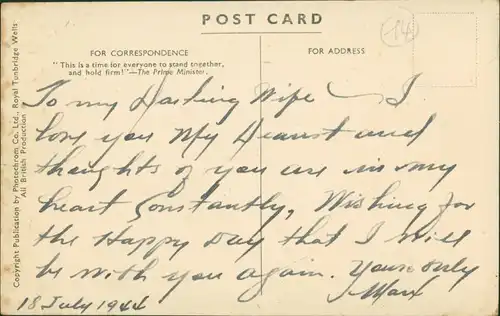 POST CARD
14
FOR CORRESPONDENCE
FOR ADDRESS
"This is a time for everyone to stand together,
and hold firm!"—The Prime Minister.
To my Darling Wife I
love you My Dearest and
thoughts of you are in my
heart Constantly, Wishing for
the Happy Day that I will
be with you again. Yours only
Max
18 July 1944
Copyright Publication by Photochrom Co. Ltd., Royal Tunbridge Wells
All British Production